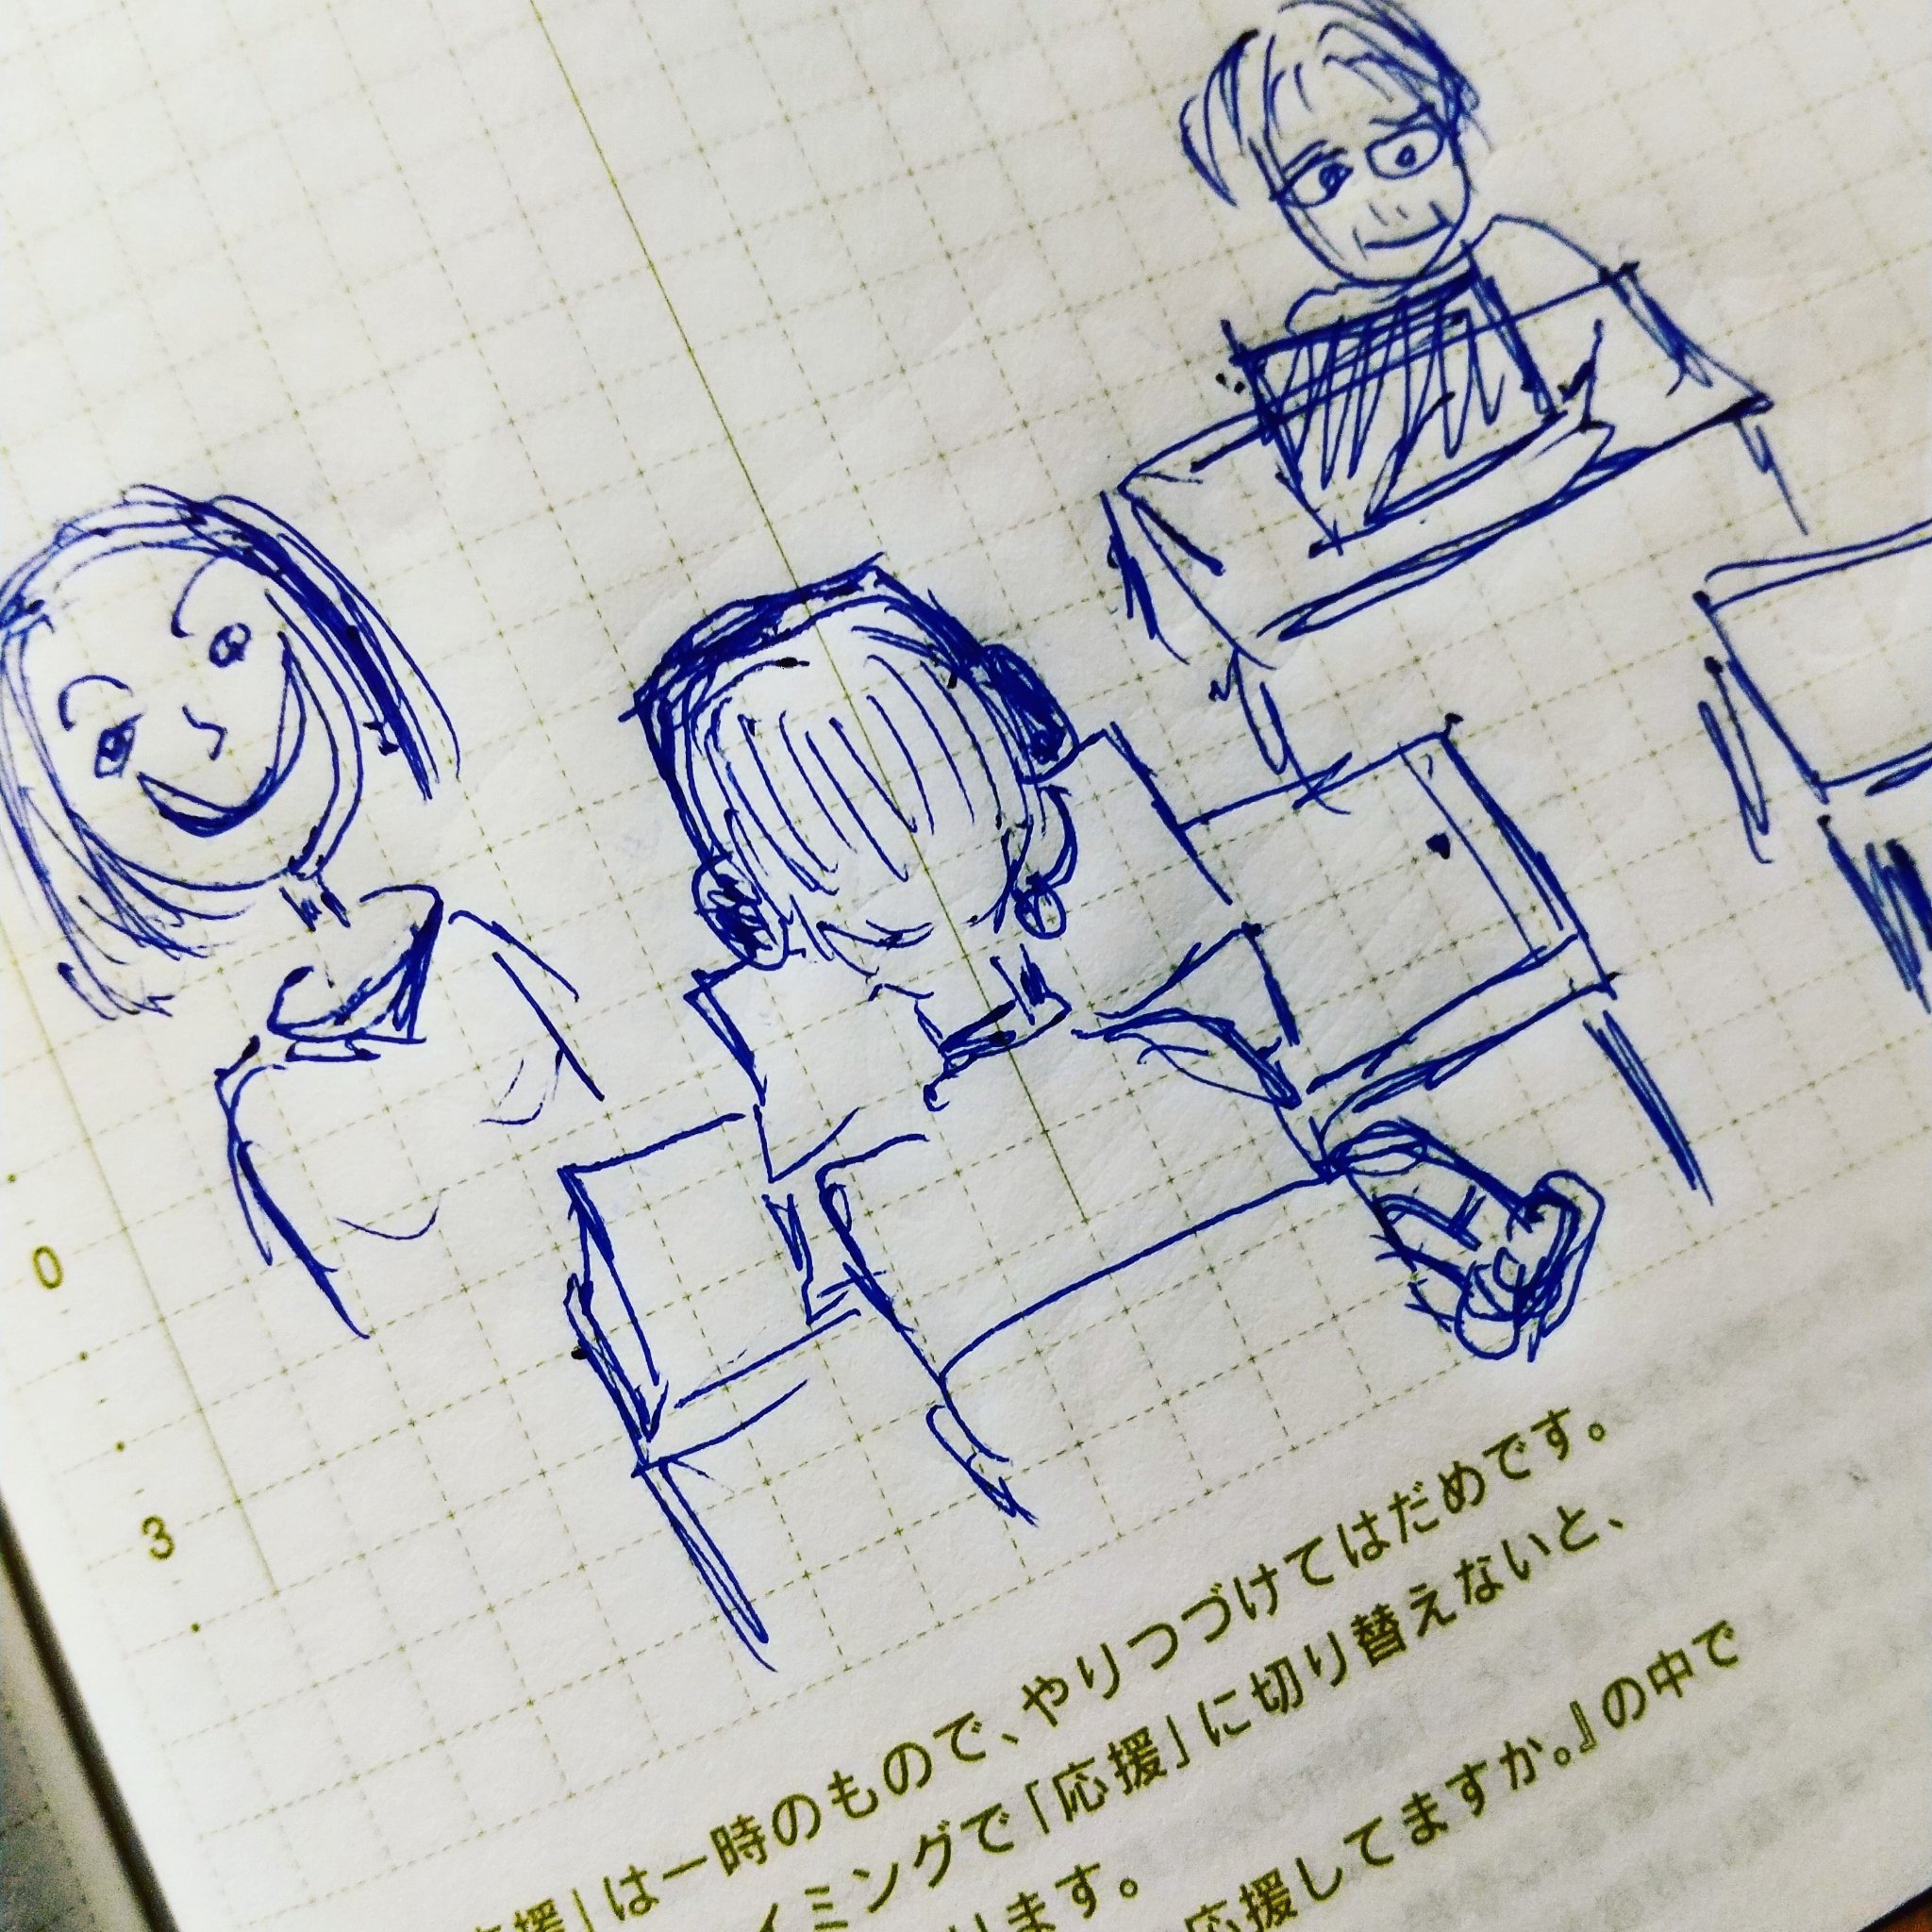 0
3
援」は一時のもので、やりつづけてはだめです。
イミングで「応援」に切り替えないと、
ります。
応援してますか。』の中で